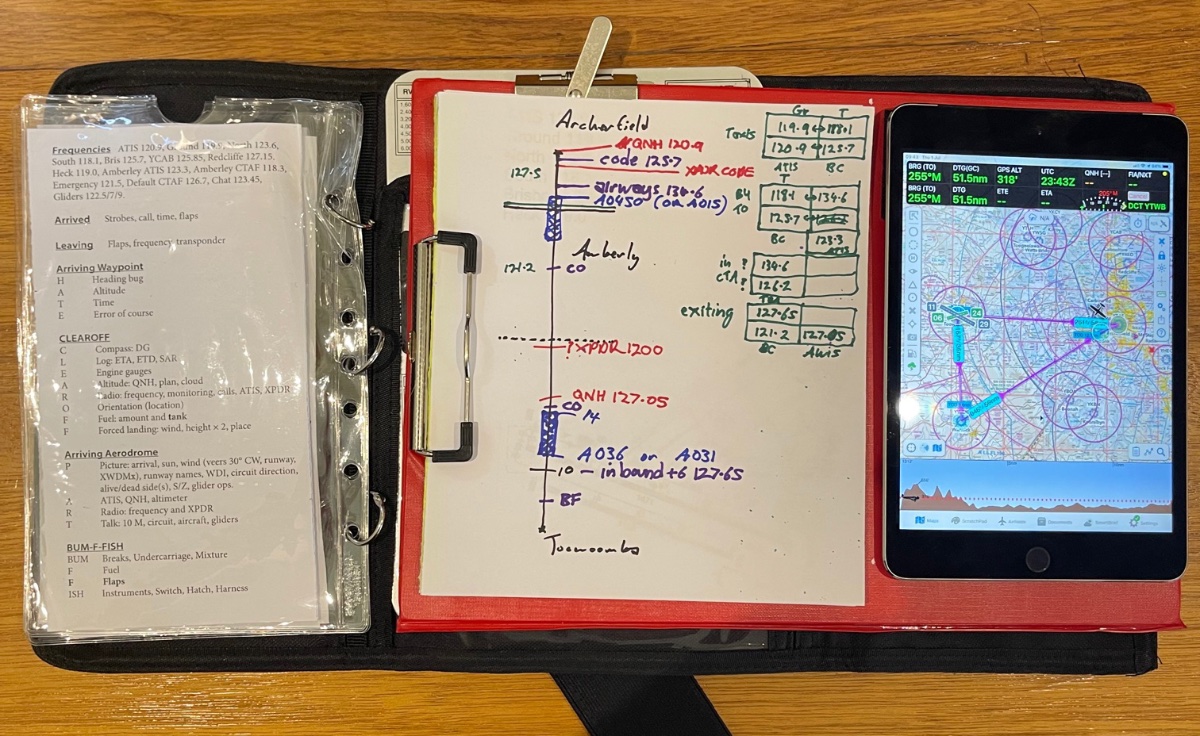 Frequencies ATIS 120.9, Ground 119.9, North 123.6,
South 118.1, Bris 125.7, YCAB 125.85, Redcliffe 127.15.
Heck 119.0, Amberley ATIS 123.3, Amberley CTAF 118.3,
Emergency 121.5, Default CTAF 126.7, Chat 123.45,
Gliders 122.5/7/9.
Arrived Strobes, call, time, flaps
Leaving Flaps, frequency transponder
Arriving Waypoint
H Heading bug
A Altitude
T Time
E Error of course
CLEAROFF
C Compass: DG
L Log: ETA, ETD, SAR
E Engine gauges
A Altitude: QNH, plan, cloud
R Radio: frequency, monitoring, calls, ATIS, XPDR
O Orientation (location)
F Fuel: amount and tank
F Forced landing: wind, height × 2, place
Arriving Aerodrome
P Picture: arrival, sun, wind (veers 30° CW, runway,
XWDMx), runway names, WDI, circuit direction,
alive/dead side(s), S/Z, glider ops.
A ATIS, QNH, altimeter
R Radio: frequency and XPDR
T Talk: 10 M, circuit, aircraft, gliders
BUM-F-FISH
BUM Breaks, Undercarriage, Mixture
F Fuel
F Flaps
ISH Instruments, Switch, Hatch, Harness
RW
Archerfield
QNH 120.9
code 125.7
127.5
XPDR CODE
airways 134.6
A0450 (OR A015)
Amberly
121.2
CO
XPDR 1200
QNH 127.05
CO
14
A036 or A031
10 - inbound+6 127.65
BF
Toowoomba
Gr T
119.9 118.1
120.9 125.7
ATIS BC
T
118.1 134.6
125.7
BC 123.3
in ?
CTA ?
134.6
126.2
exiting
127.65
121.2
BC AWIS
BRG (TO) 255°M
DTG(GC) 51.5nm
GPS ALT 318'
UTC 23:43Z
QNH [--] --
BRG (TO) 255°M
DTG 51.5nm
ETE --
ETA --
DCT YTWB
11
06
24
29
Maps
ScratchPad
Airfields
Documents
Settings